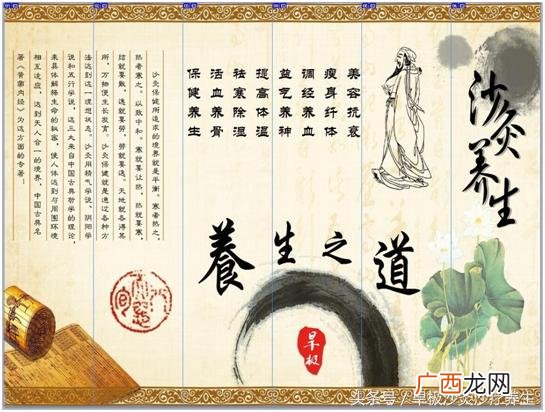 沙灸养生
美容抗衰
瘦身纤体
调经养血
益气养神
提高体温
祛寒除湿
活血养骨
保健养生
沙灸保健所追求的境界就是平衡。寒者热之，
热者寒之。以致中和。寒就要让热，热就要寒，
结就要散，逸就要劳，劳就要逸。天地就各得其
所，万物便生长发育。沙灸保健就是通过各种方
法达到这一理想状态。沙灸用精气学说、阴阳学
说和五行学说，这三大来自中国古典哲学的理论，
来具体解释生命的秘密，使人体达到与周围环境
相互适应，达到天人合一的境界，中国古典名
著《黄帝内经》为这方面的专著！
養生之道
阜极
头条号 / 阜极沙灸沙疗养生
广西龙网